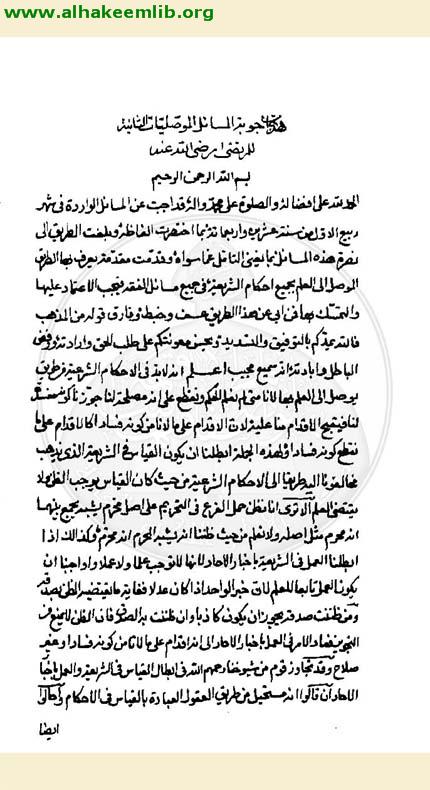 www.alhakeemlib.org
هذه أجوبة المسائل الموصليات الثانية
للمرتضى رضى الله عنه
بسم الله الرحمن الرحيم
الحمد لله على افضاله والصلوة على محمد وآله قد اجبت عن المسائل الواردة فى شهر
ربيع الاول من سنة عشرين واربعمائة بما اختصرت الفاظه وبلغت الطريق الى
نصرة هذه المسائل بما يغنى التأمل عما سواه وقدمت مقدمة يعرف بها الطريق
الموصل الى العلم بجميع احكام الشريعة فى جميع مسائل الفقه فيجب الاعتماد عليها
والتمسك بها فمن ابى عن هذا الطريق عسف وخبط وفارق قوله من المذهب
فالله يمدكم بالتوفيق والتسديد ويحسن معونتكم على طلب الحق وارادته ورفض
الباطل وابادته انه سميع مجيب اعلم انه لابد فى الاحكام الشرعية من طريق
يوصل الى العلم بها لانا متى لم نعلم الحكم ونقطع على انه مصلحة لنا جوزنا كونه مفسدة
لنا فيقبح الاقدام منا عليه لان الاقدام على ما لا نأمن كونه فسادا كالاقدام على ما
نقطع كونه فسادا ولهذه الجملة ابطلنا ان يكون القياس فى الشريعة الذى يذهب
مخالفونا اليه طريقا الى الاحكام الشرعية من حيث كان القياس يوجب الظن ولا
يقتضى العلم الا ترى انا نظن حمل الفرع فى التحريم على اصل محرم بشبه يجمع بينهما
انه محرم مثل اصله ولا نعلم من حيث ظننا انه يشبه المحرم انه محرم وكذلك اذا
ابطلنا العمل فى الشريعة باخبار الآحاد لانها لا توجب علما ولا عملا واوجبنا ان
يكون العمل تابعا للعلم لان خبر الواحد اذا كان عدلا فغاية ما يقتضيه الظن بصدقه
ومن ظننت صدقه يجوز ان يكون كاذبا وان ظننت به الصدق فان الظن لا يمنع من
التجويز فعاد الامر فى العمل باخبار الآحاد الى انه اقدام على ما لا نأمن كونه فسادا وغير
صلاح وقد تجاوز قوم من شيوخنا رحمهم الله فى ابطال القياس فى الشريعة والعمل باخبار
الآحاد ان قالوا انه مستحيل من طريق العقول العبادة بالقياس فى الاحكام واحالوا
ايضا